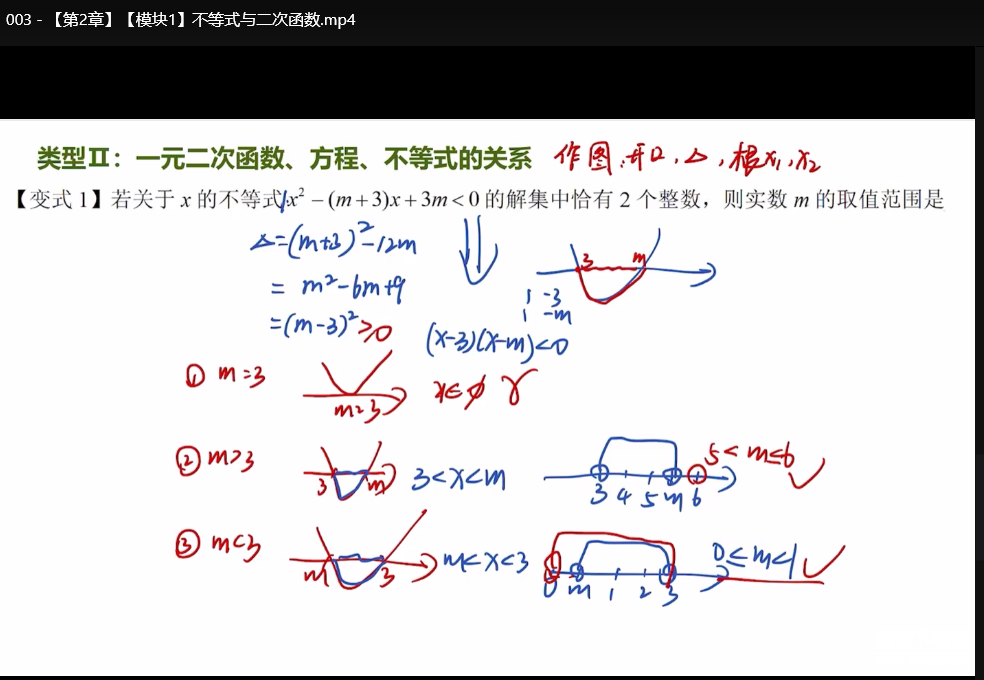 003 - 【第2章】【模块1】不等式与二次函数.mp4
类型Ⅱ：一元二次函数、方程、不等式的关系 作图:开口,Δ,根x₁,x₂
【变式1】若关于 x 的不等式 x² − (m + 3)x + 3m < 0 的解集中恰有 2 个整数，则实数 m 的取值范围是
Δ=(m+3)²-12m
3 m
= m²-6m+9
1 -3
1 -m
=(m-3)²≥0
(x-3)(x-m)<0
① m=3
m=3
x∈∅
② m>3
3 m
3<x<m
3 4 5 m 6
5<m≤6
③ m<3
m 3
m<x<3
0 m 1 2 3
0≤m<1